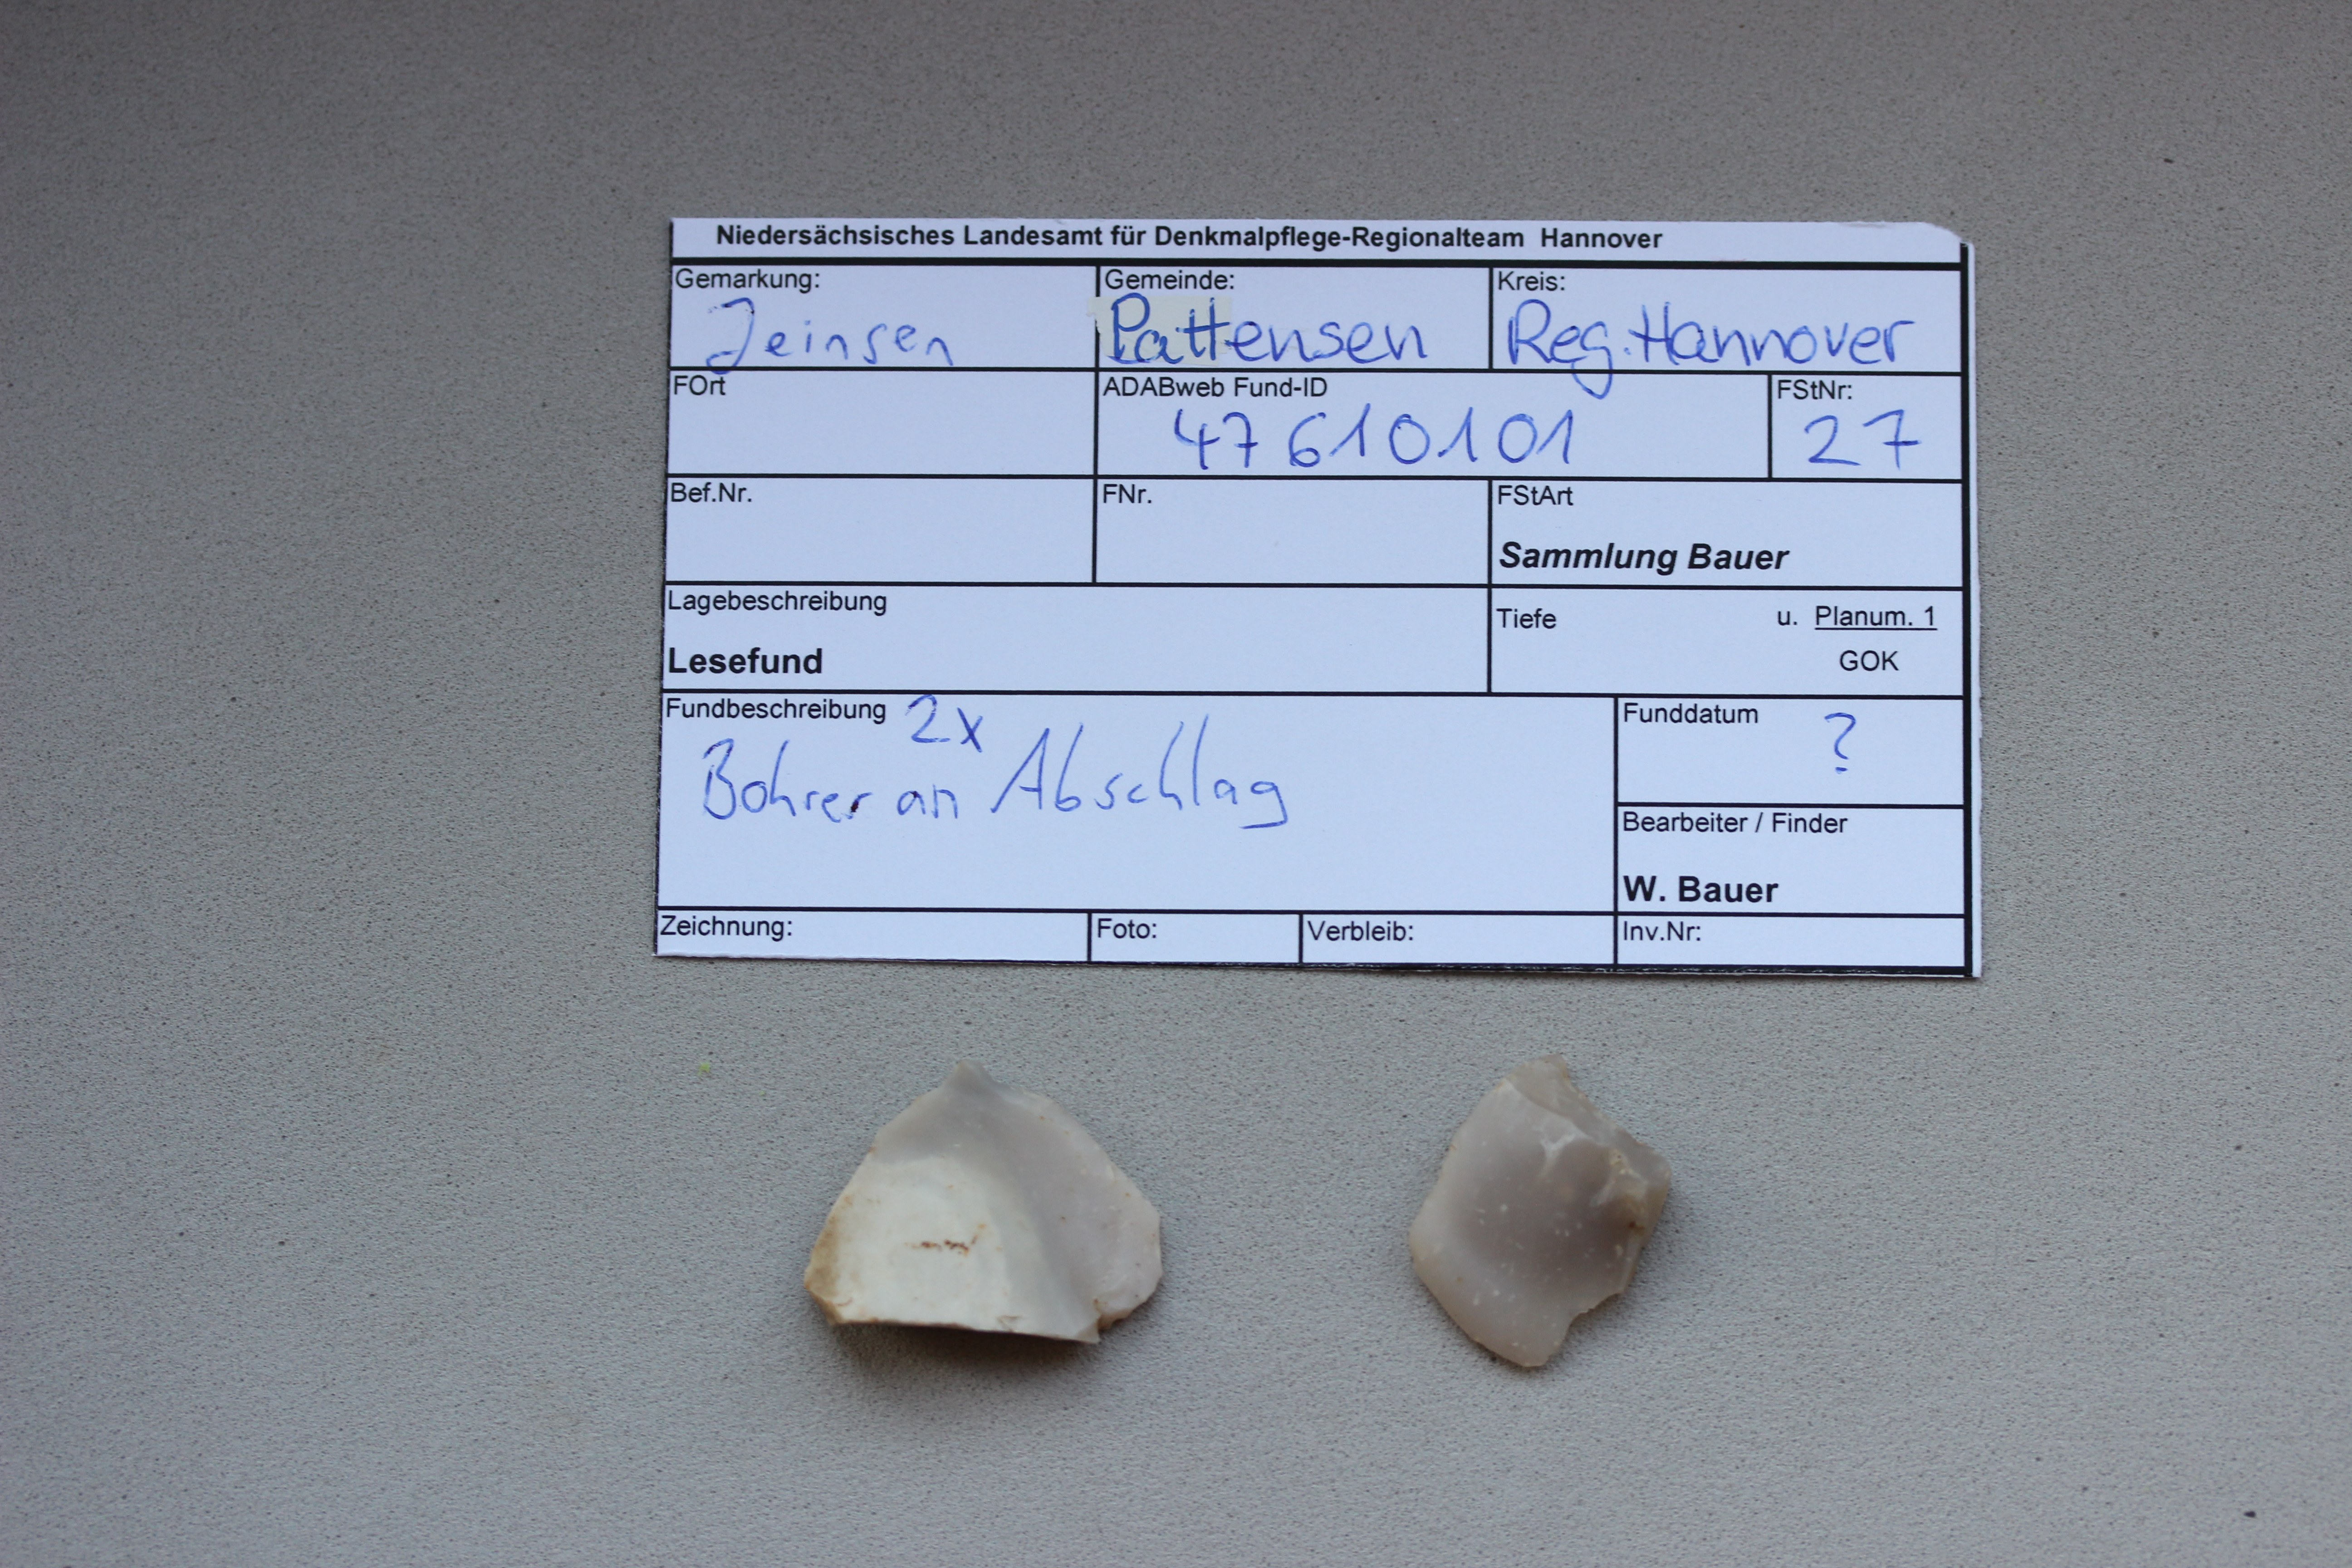 Niedersächsisches Landesamt für Denkmalpflege-Regionalteam Hannover
Gemarkung: Gemeinde: Kreis:
Jeinsen Pattensen Reg.Hannover
FOrt ADABweb Fund-ID FStNr:
47610101 27
Bef.Nr. FNr. FStArt
Sammlung Bauer
Lagebeschreibung Tiefe u. Planum. 1
Lesefund GOK
Fundbeschreibung 2x Funddatum ?
Bohrer an Abschlag
Bearbeiter / Finder
W. Bauer
Zeichnung: Foto: Verbleib: Inv.Nr: